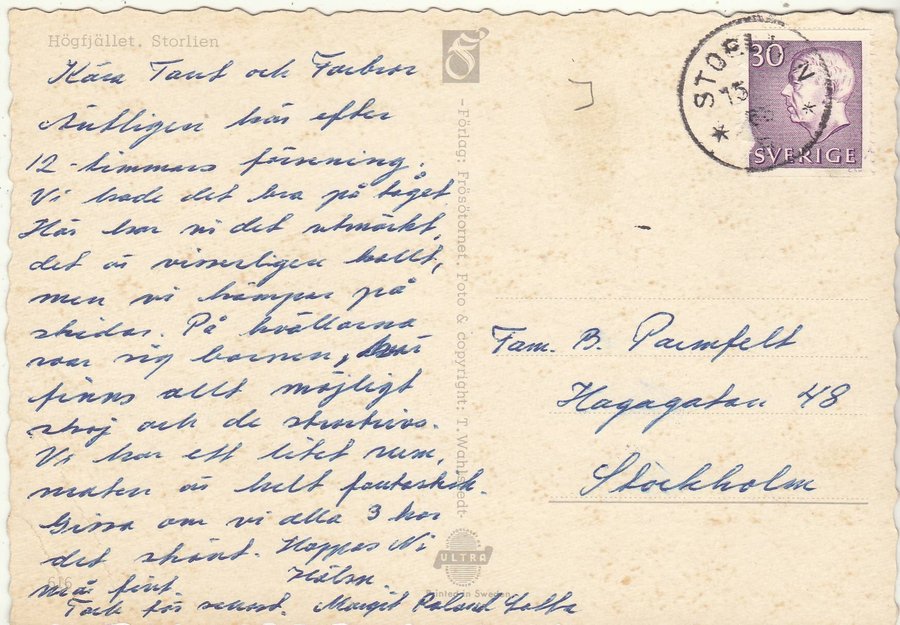 Högfjället. Storlien
Kära Tant och Farbror
Äntligen här efter
12-timmars försening.
Vi hade det bra på tåget
Här har vi det utmärkt,
det är visserligen kallt,
men vi kämpar på
skidor. På kvällarna
roar sig barnen, här
finns allt möjligt
skoj och de stortrivs.
Vi har ett litet rum,
maten är helt fantastisk.
Gissa om vi alla 3 har
det skönt. Hoppas Ni
mår fint. Hälsn.
Tack för senast. Margit Roland Lotta
616
-Förlag: Frösötornet. Foto & copyright: T. Wahlstedt
ULTRA
Printed in Sweden
STORLIEN
15
30
SVERIGE
Fam. B. Parmfelt
Hagagatan 48
Stockholm